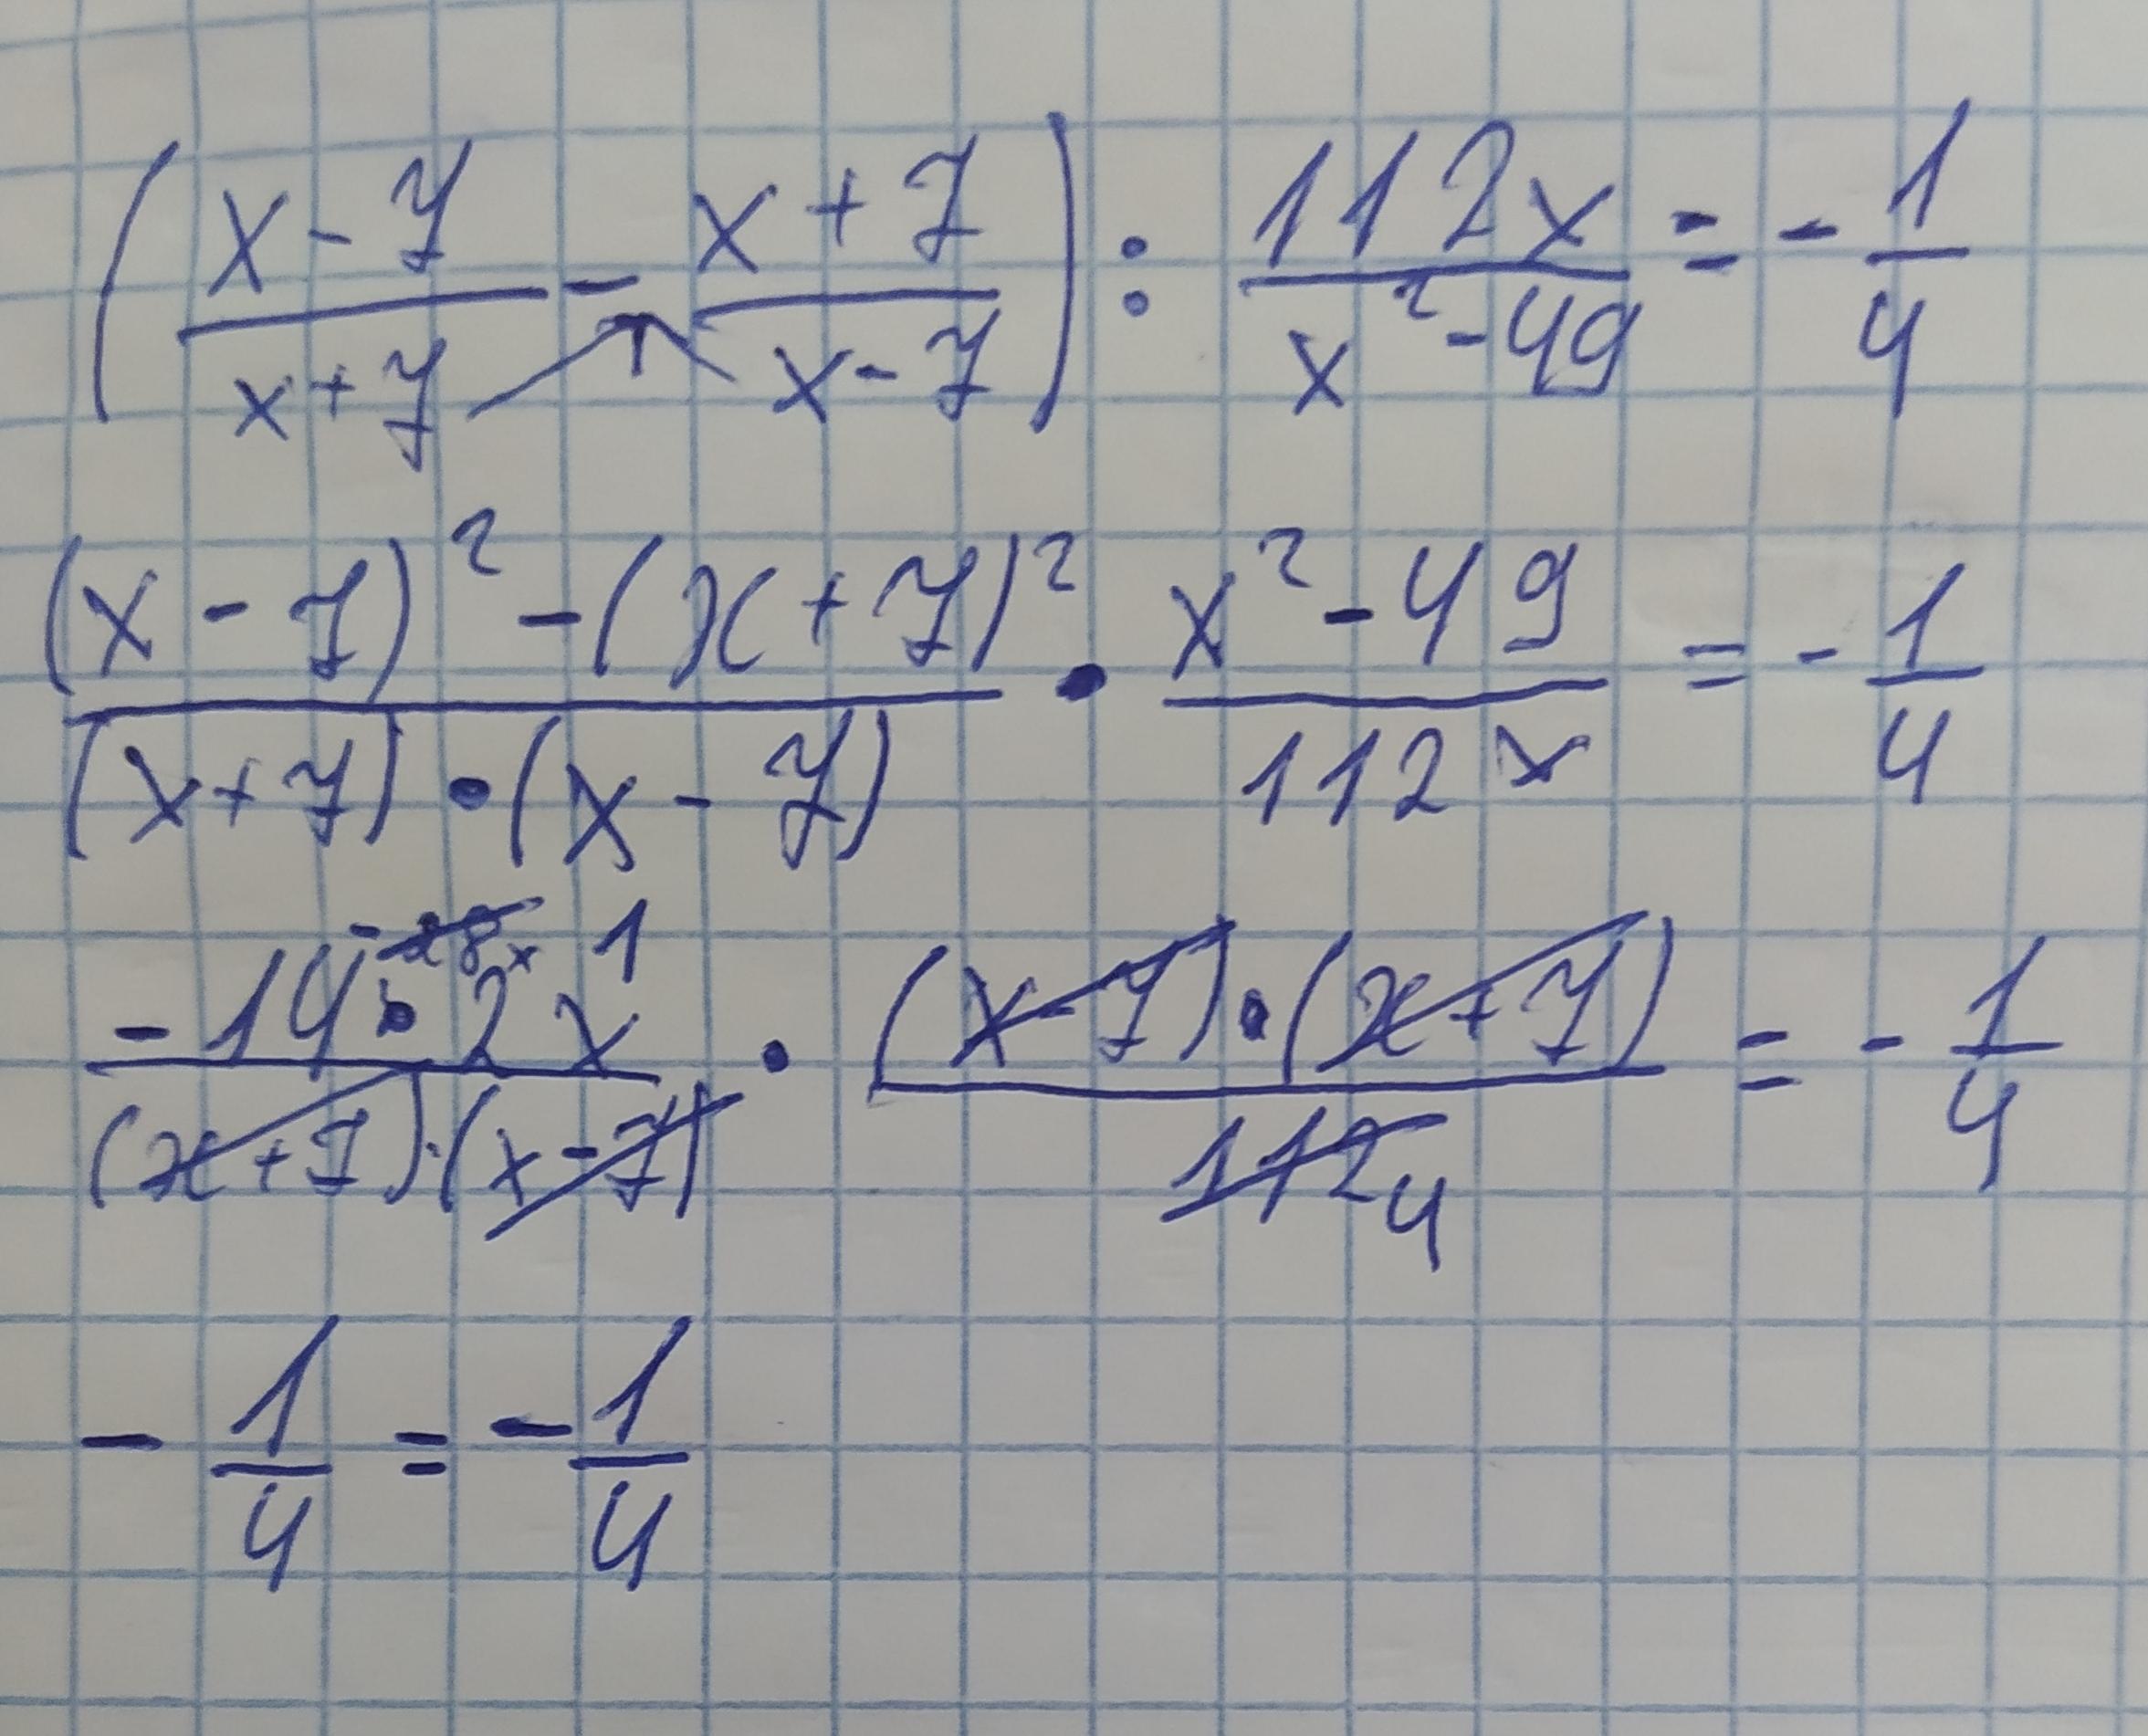 (x-7/x+7 - x+7/x-7) : 112x/x²-49 = -1/4
(x-7)²-(x+7)²/(x+7)·(x-7) · x²-49/112x = -1/4
-14·2x -28x 1/(x+7)·(x-7) · (x-7)·(x+7)/112 4 = -1/4
-1/4 = -1/4